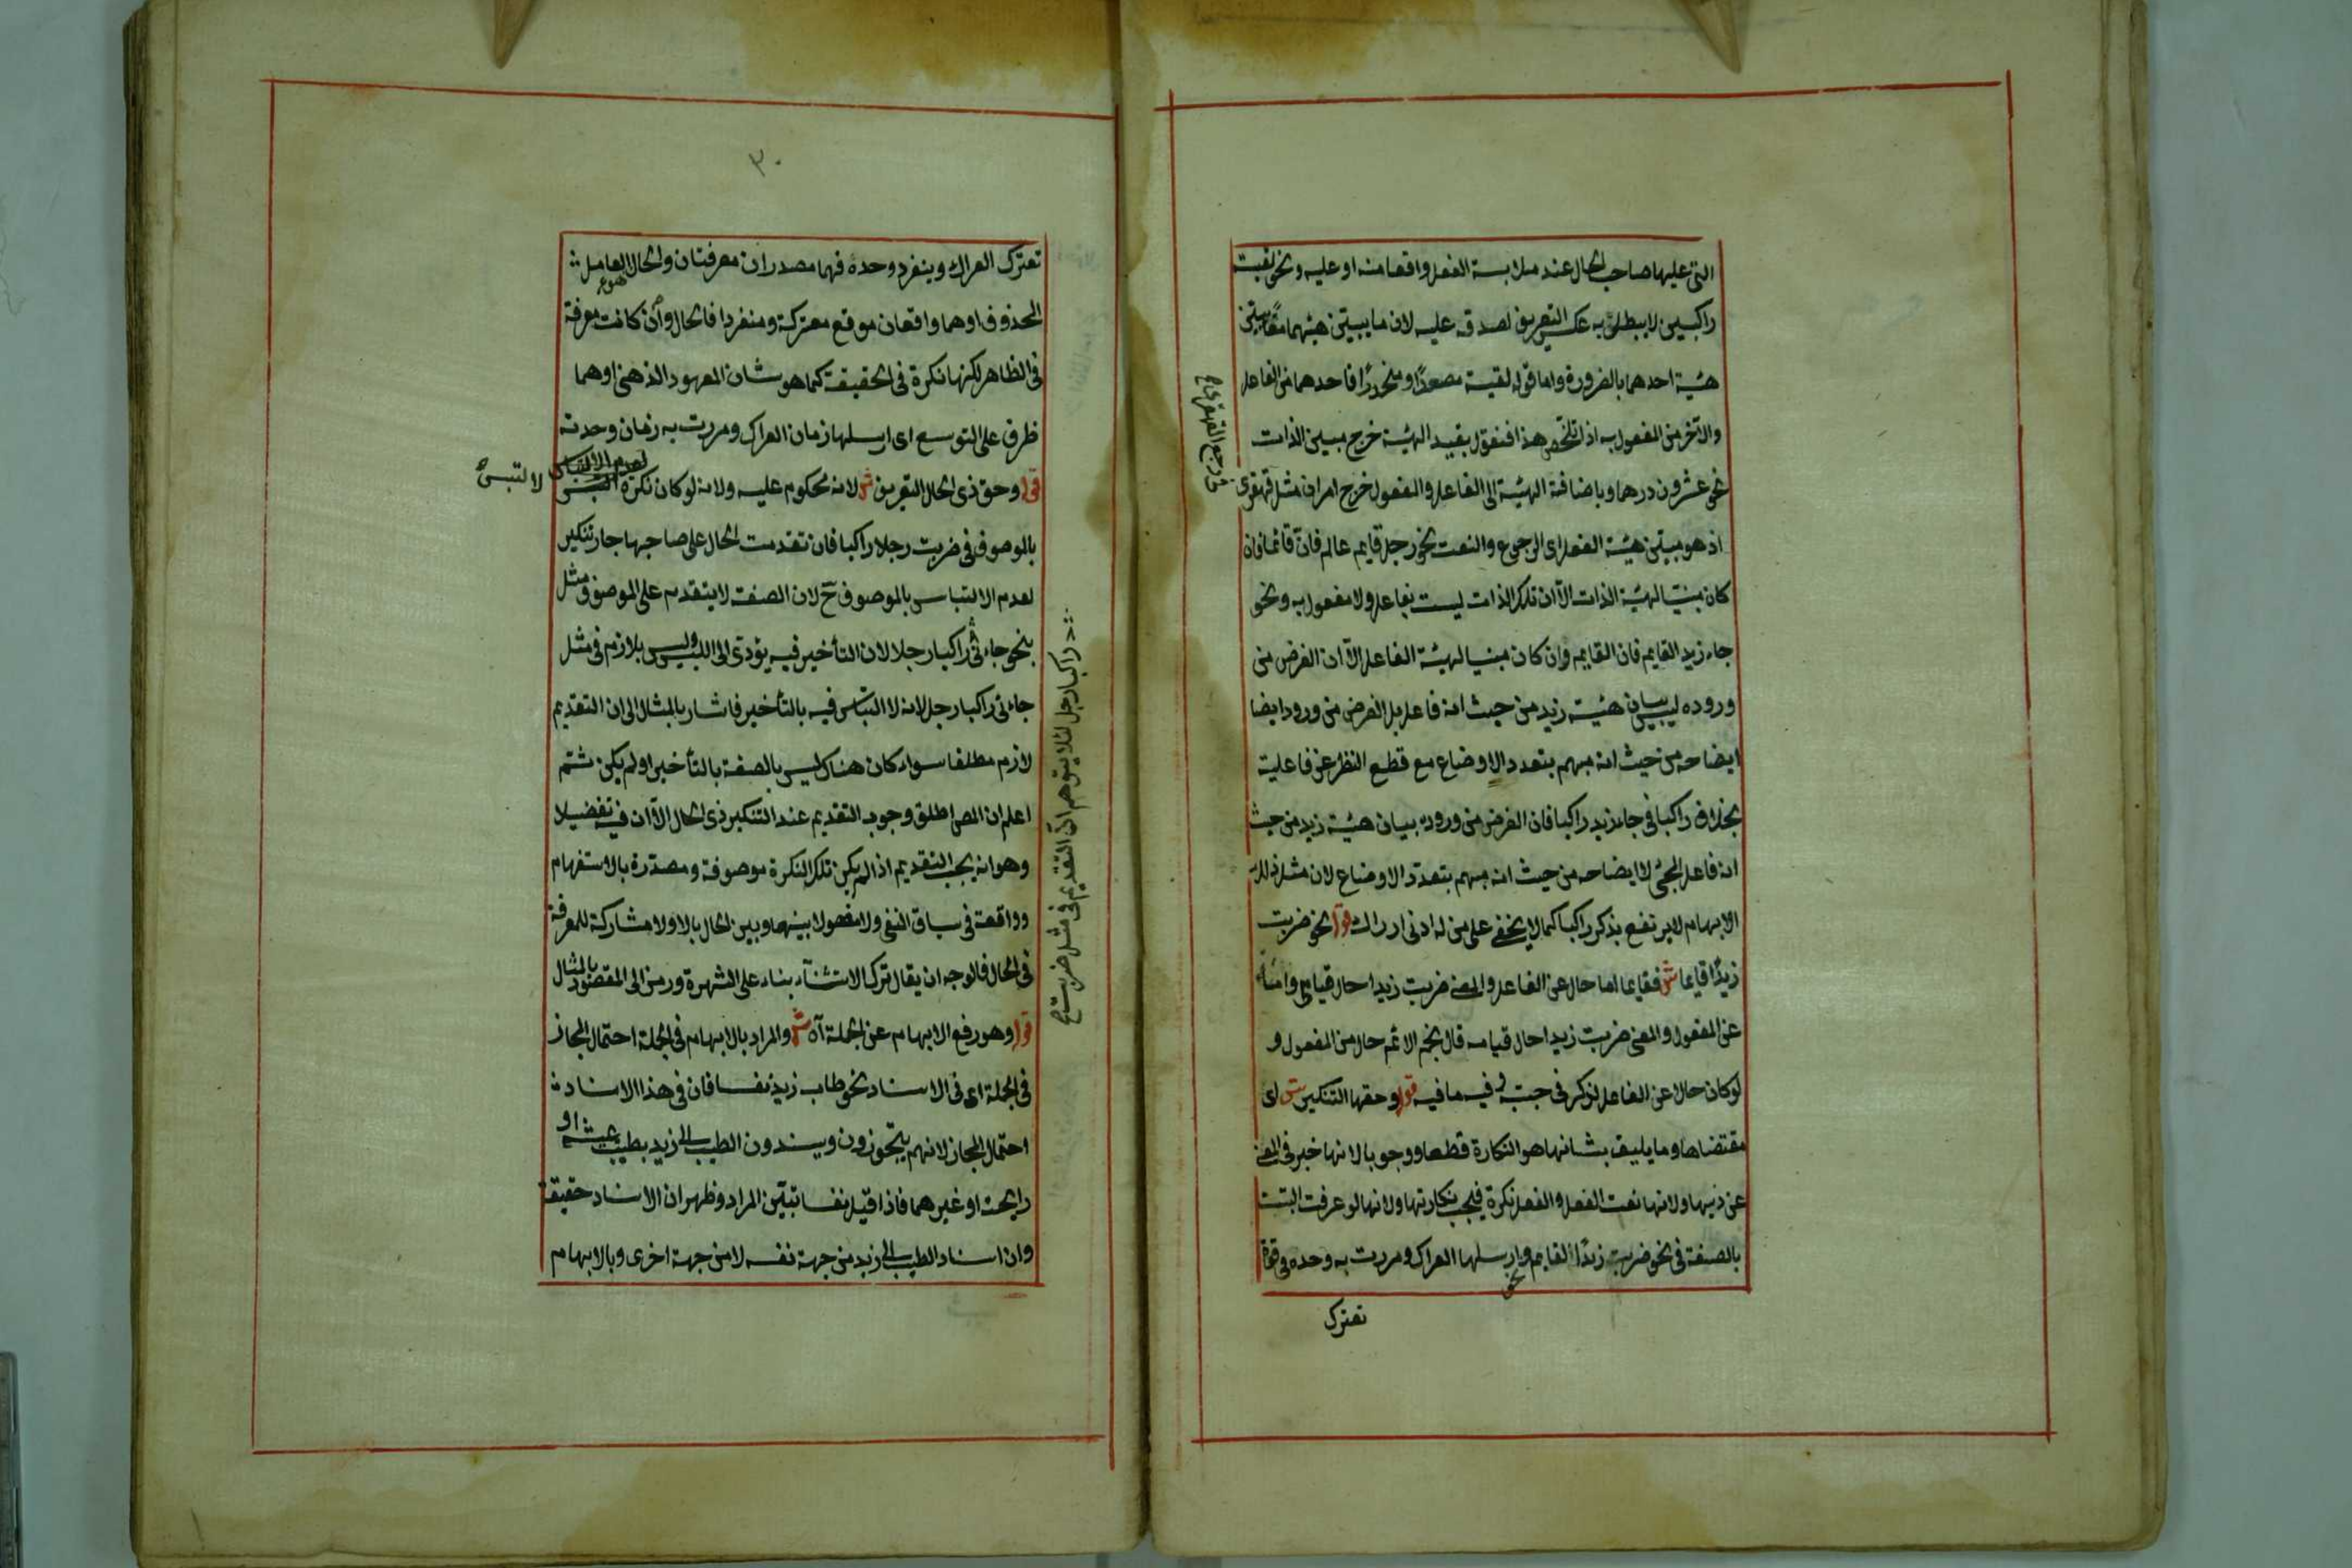 التى عليها صاحب الحال عند ملابسة الفعل واقعا منه او عليه ونحو لقيت
راكبين لا يبطل به عكس التعريف لصدقه عليه لان ما يبين هيئتهما معا يبين
هيئة احدهما بالضرورة واما قوله لقيته مصعدا ومنحدرا فاحدهما من الفاعل
والآخر من المفعول به اذا تلخص هذا فنقول بقيد الهيئة خرج مبين الذات
نحو عشرون درهما وباضافة الهيئة الى الفاعل والمفعول خرج امران مثل قهقرى
اذ هو مبين هيئة الفعل اى الرجوع والنعت نحو رجل قايم عالم فان قائما وان
كان مبينا لهيئة الذات الا ان تلك الذات ليست بفاعل ولا مفعول به ونحو
جاء زيد القايم فان القايم وان كان مبنيا لهيئة الفاعل الا ان الغرض من
وروده ليس بيان هيئة زيد من حيث انه فاعل بل الغرض من ورود ايضا
ايضاحه من حيث انه مبهم بتعدد الاوضاع مع قطع النظر عن فاعليته
بخلاف راكبا فى جاء زيد راكبا فان الغرض من وروده بيان هيئة زيد من حيث
انه فاعل المجئ لا ايضاحه من حيث انه مبهم بتعدد الاوضاع لان مثل ذلك
الابهام لا يرتفع بذكر راكبا كما لا يخفى على من له ادنى ادراك قوله نحو ضربت
زيدا قايما ش فقايما اما حال عن الفاعل والمعنى ضربت زيدا حال قيامى واما
عن المفعول والمعنى ضربت زيدا حال قيامه قال نجم الائمه حال من المفعول و
لو كان حالا عن الفاعل لذكر فى جنبه وفيه ما فيه قوله وحقها التنكير ش اى
مقتضاها وما يليق بشانها هو النكارة قطعا ووجوبا لانها خبر فى المعنى
عن ذيها ولانها نعت الفعل والفعل نكرة فيجب نكارتها ولانها لو عرفت التبست
بالصفة فى نحو ضربت زيدا القايم ونحو ارسلها العراك ومررت به وحده فى قوة
تعترك
نحو رجع القهقرى صح
٣٠
تعترك العراك وينفرد وحده فهما مصدران معرفتان والحال العامل
المحذوف او هما واقعان موقع معتركة ومنفردا فالحال وان كانت معرفة
فى الظاهر لكنها نكرة فى الحقيقة كما هو شان المعهود الذهنى او هما
ظرف على التوسع اى ارسلها زمان العراك ومررت به زمان وحدته
قوله وحق ذى الحال التعريف ش لانه محكوم عليه ولانه لو كان نكرة التبس
لالتبس
بالموصوف فى ضربت رجلا راكبا فان تقدمت الحال على صاحبها جاز تنكير
لعدم الالتباس بالموصوف ح لان الصفة لا يتقدم على الموصوف مثل
بنحو جاءنى راكبا رجلا لان التأخير فيه يؤدى الى اللبس وليس بلازم فى مثل
جاءنى راكبا رجل لانه لا التباس فيه بالتأخير فاشار بالمثال الى ان التقديم
لازم مطلقا سواء كان هناك لبس بالصفة بالتأخير او لم يكن ثم
اعلم ان المص اطلق وجوب التقديم عند التنكير ذى الحال الا ان فيه تفضيلا
وهو انه يجب التقديم اذا لم يكن تلك النكرة موصوفة ومصدرة بالاستفهام
وواقعة فى سياق النفى ولا مفصولا بينها وبين الحال بالا ولا مشاركة للمعرفة
فى الحال فالوجه ان يقال ترك الاستثناء بناء على الشهرة ورمز الى المقصود بالمثال
قوله وهو رفع الابهام عن الجملة آه ش والمراد بالابهام فى الجملة احتمال المجاز
فى الجملة اى فى الاسناد نحو طاب زيد نفسا فان فى هذا الاسناد
احتمال المجاز لانهم يتجوزون ويسندون الطيب الى زيد بطيب عيشه او
رايحته او غيرهما فاذا قيل نفسا تبين المراد وظهر ان الاسناد حقيقة
وان اسناد الطيب الى زيد من جهة نفسه لا من جهة اخرى وبالابهام
راكبا رجل لئلا يتوهم ان التقديم فى مثل ضربت صح